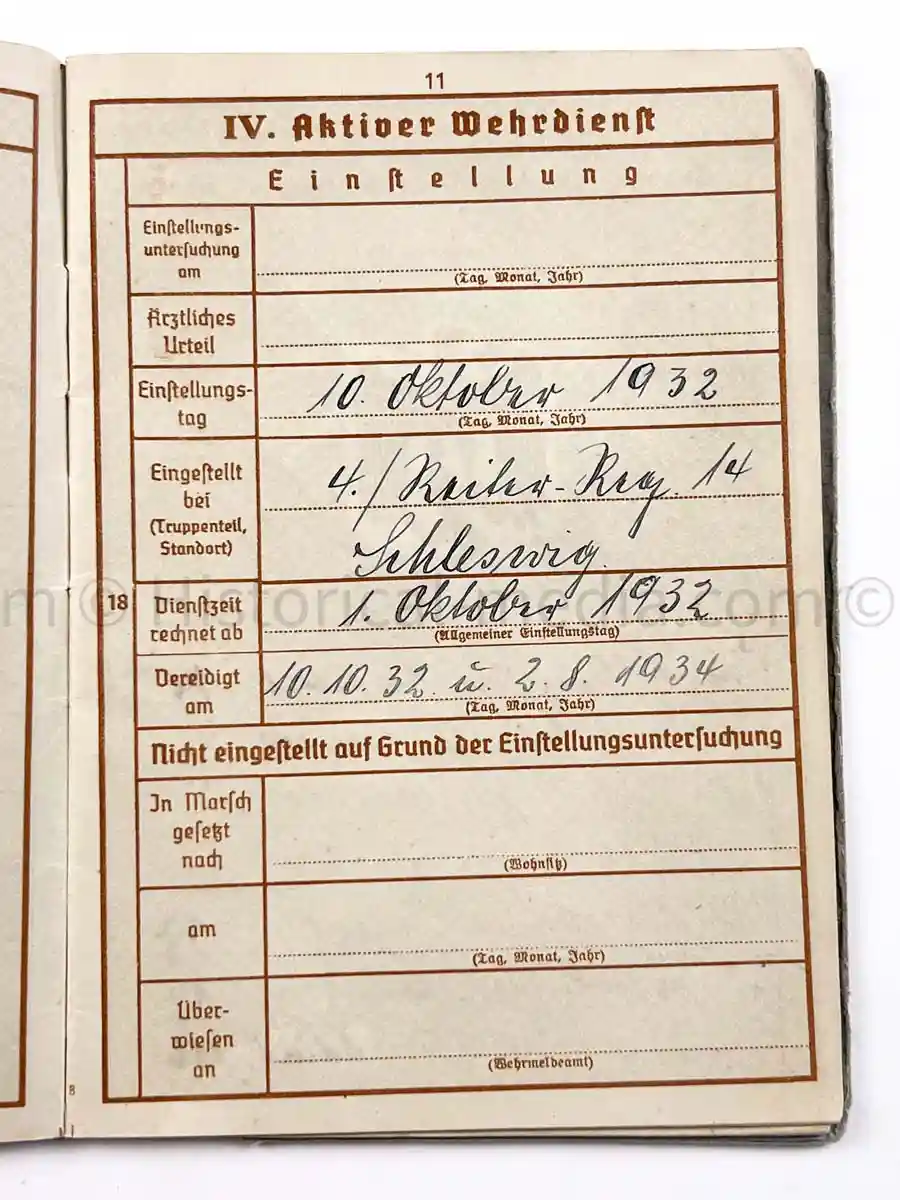 11
IV. Aktiver Wehrdienst
Einstellung
Einstellungs-
untersuchung
am
(Tag, Monat, Jahr)
Ärztliches
Urteil
Einstellungs-
tag
10. Oktober 1932
(Tag, Monat, Jahr)
Eingestellt
bei
(Truppenteil,
Standort)
4./Reiter-Reg. 14
Schleswig.
18
Dienstzeit
rechnet ab
1. Oktober 1932
(Allgemeiner Einstellungstag)
Vereidigt
am
10. 10. 32. u. 2. 8. 1934
(Tag, Monat, Jahr)
Nicht eingestellt auf Grund der Einstellungsuntersuchung
In Marsch
gesetzt
nach
(Wohnsitz)
am
(Tag, Monat, Jahr)
Über-
wiesen
an
(Wehrmeldeamt)
8
m © Historicalmedia.com ©